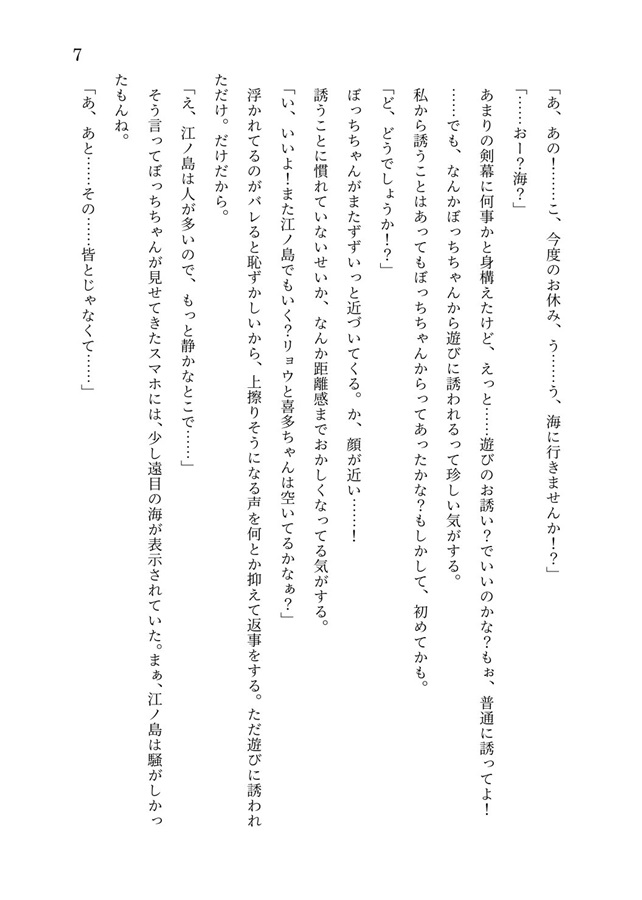 7
「あ、あの！……こ、今度のお休み、う……う、海に行きませんか！？」
「……おー？海？」
あまりの剣幕に何事かと身構えたけど、えっと……遊びのお誘い？でいいのかな？もぉ、普通に誘ってよ！
……でも、なんかぼっちちゃんから遊びに誘われるって珍しい気がする。
私から誘うことはあってもぼっちちゃんからってあったかな？もしかして、初めてかも。
「ど、どうでしょうか！？」
ぼっちちゃんがまたずずいっと近づいてくる。か、顔が近い……！
誘うことに慣れていないせいか、なんか距離感までおかしくなってる気がする。
「い、いいよ！また江ノ島でもいく？リョウと喜多ちゃんは空いてるかなぁ？」
浮かれてるのがバレると恥ずかしいから、上擦りそうになる声を何とか抑えて返事をする。ただ遊びに誘われ
ただけ。だけだから。
「え、江ノ島は人が多いので、もっと静かなとこで……」
そう言ってぼっちちゃんが見せてきたスマホには、少し遠目の海が表示されていた。まぁ、江ノ島は騒がしかっ
たもんね。
「あ、あと……その……皆とじゃなくて……」